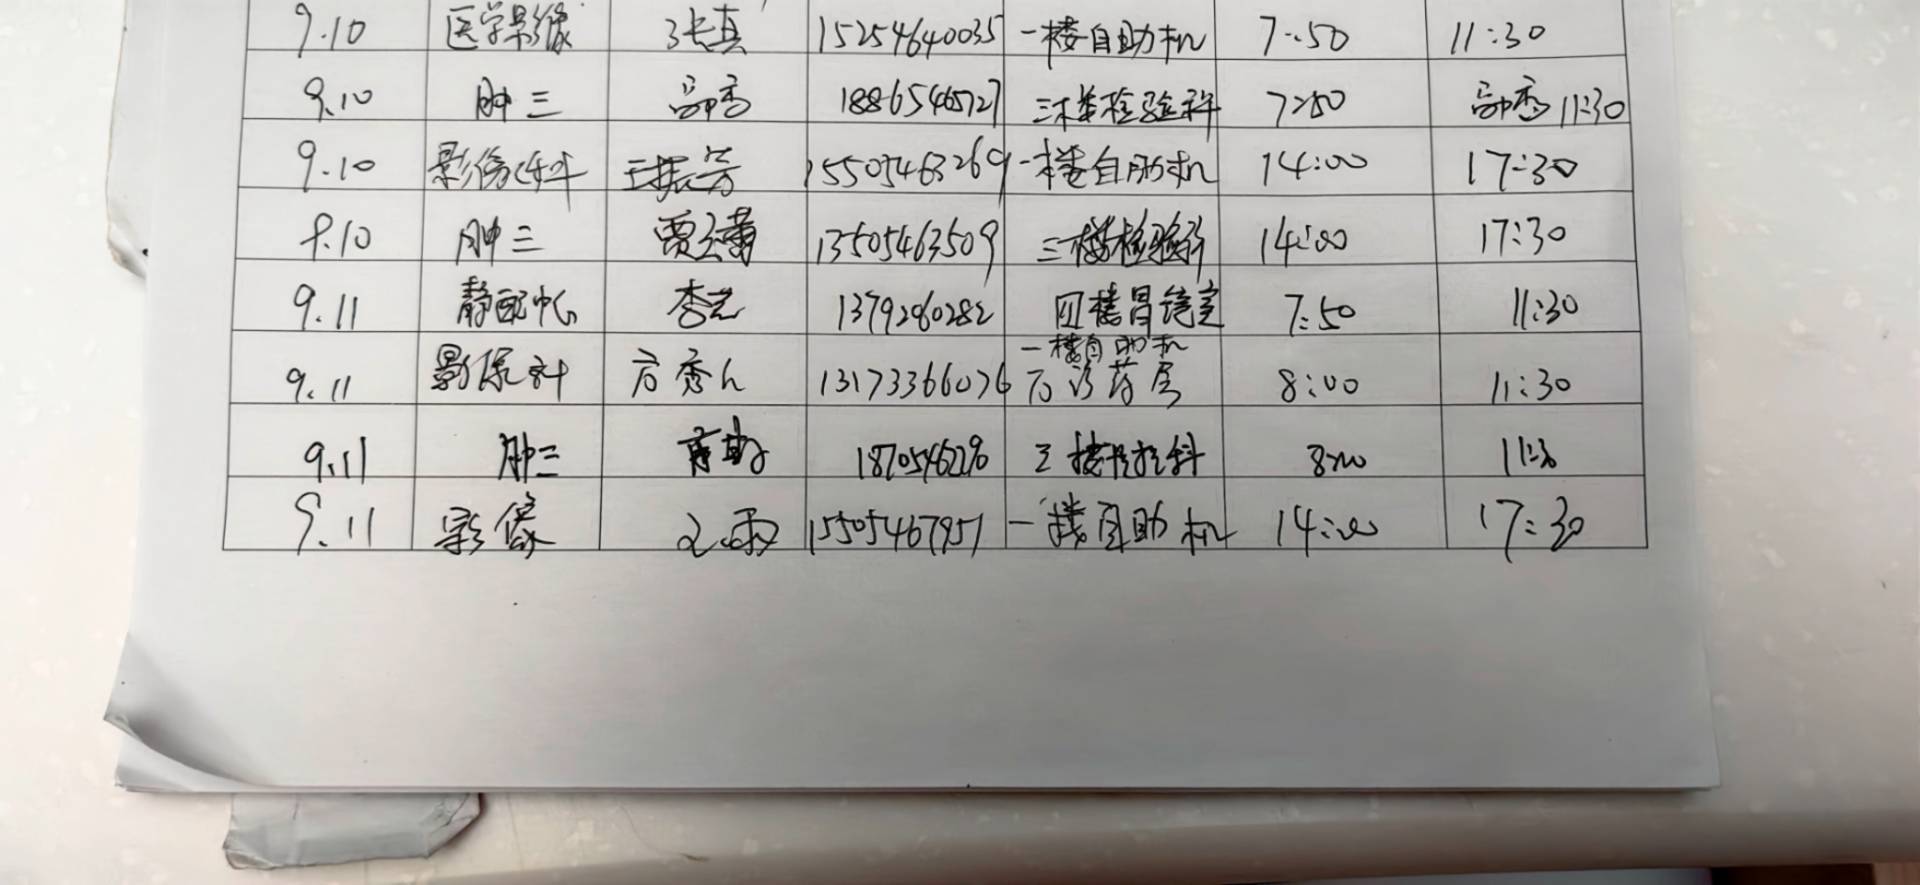 9.10 医学影像 张真 15254640035 一楼自助机 7:50 11:30
9.10 肿三 18865465727 三楼检验科 7:50 11:30
9.10 影像科 王振芳 15505463269 一楼自助机 14:00 17:30
9.10 肿三 13505463509 三楼检验科 14:00 17:30
9.11 静配中心 李艺 13792860282 四楼胃镜室 7:50 11:30
一楼自助机
9.11 影像科 13173366076 8:00 11:30
9.11 肿三 8:00 11:30
9.11 影像 15505467957 一楼自助机 14:00 17:30